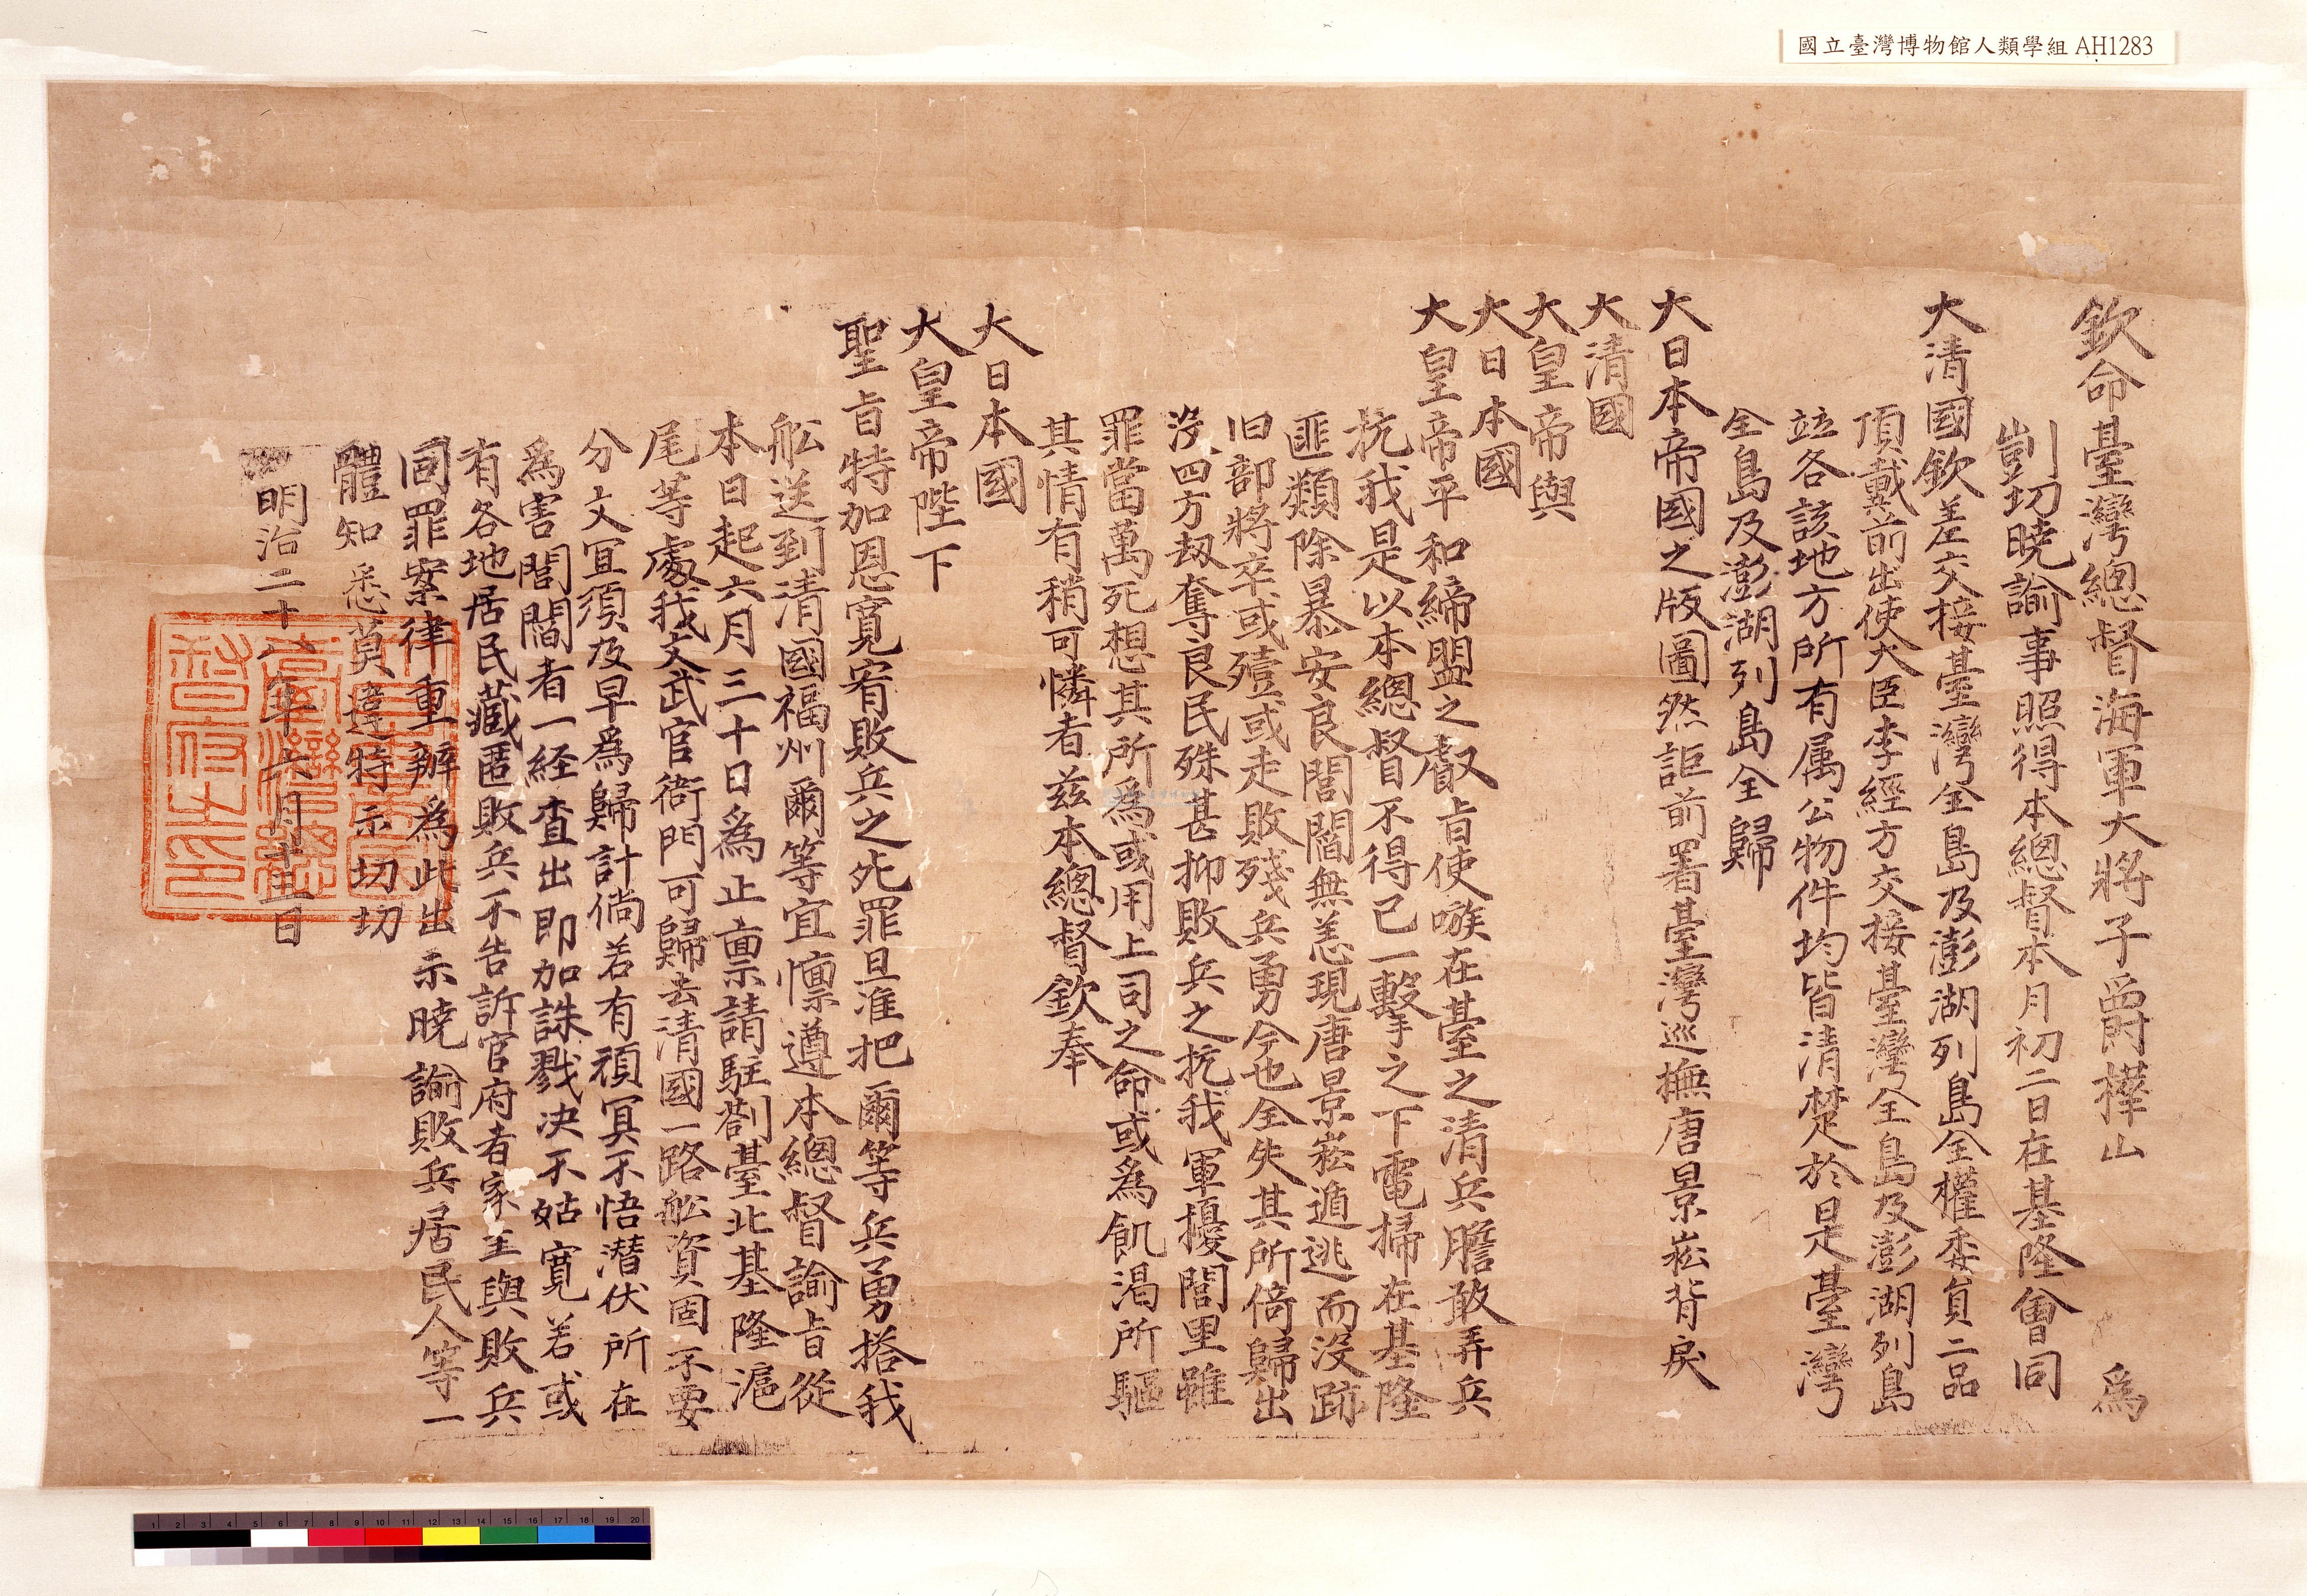 國立臺灣博物館人類學組 AH1283
欽命臺灣總督海軍大將子爵樺山 為
剴切曉諭事照得本總督本月初二日在基隆會同
大清國欽差交接臺灣全島及澎湖列島全權委員二品
頂戴前出使大臣李經方交接臺灣全島及澎湖列島
竝各該地方所有属公物件均皆清楚於是臺灣
全島及澎湖列島全歸
大日本帝國之版圖然詎前署臺灣巡撫唐景崧背戾
大清國
大皇帝與
大日本國
大皇帝平和締盟之叡旨使嗾在臺之清兵膽敢弄兵
抗我是以本總督不得已一擊之下電掃在基隆
匪類除暴安良閭閻無恙現唐景崧遁逃而沒跡
旧部將卒或殪或走敗殘兵勇今也全失其所倚歸出
沒四方刼奪良民殊甚抑敗兵之抗我軍擾閭里雖
罪當萬死想其所為或用上司之命或為飢渴所驅
其情有稍可憐者茲本總督欽奉
大日本國
大皇帝陛下
聖旨特加恩寬宥敗兵之死罪且准把爾等兵勇搭我
舩送到清國福州爾等宜懔遵本總督諭旨從
本日起六月三十日為止禀請駐劄臺北基隆滬
尾等處我文武官衙門可歸去清國一路舩資固不要
分文宜須及早為歸計倘若有頑冥不悟潛伏所在
為害閭閻者一経查出即加誅戮决不姑寬若或
有各地居民藏匿敗兵不告訴官府者家主與敗兵
同罪案律重辦為此出示曉諭敗兵居民人等一
體知悉莫違特示切切
明治二十八年六月十五日
臺灣總督府之印